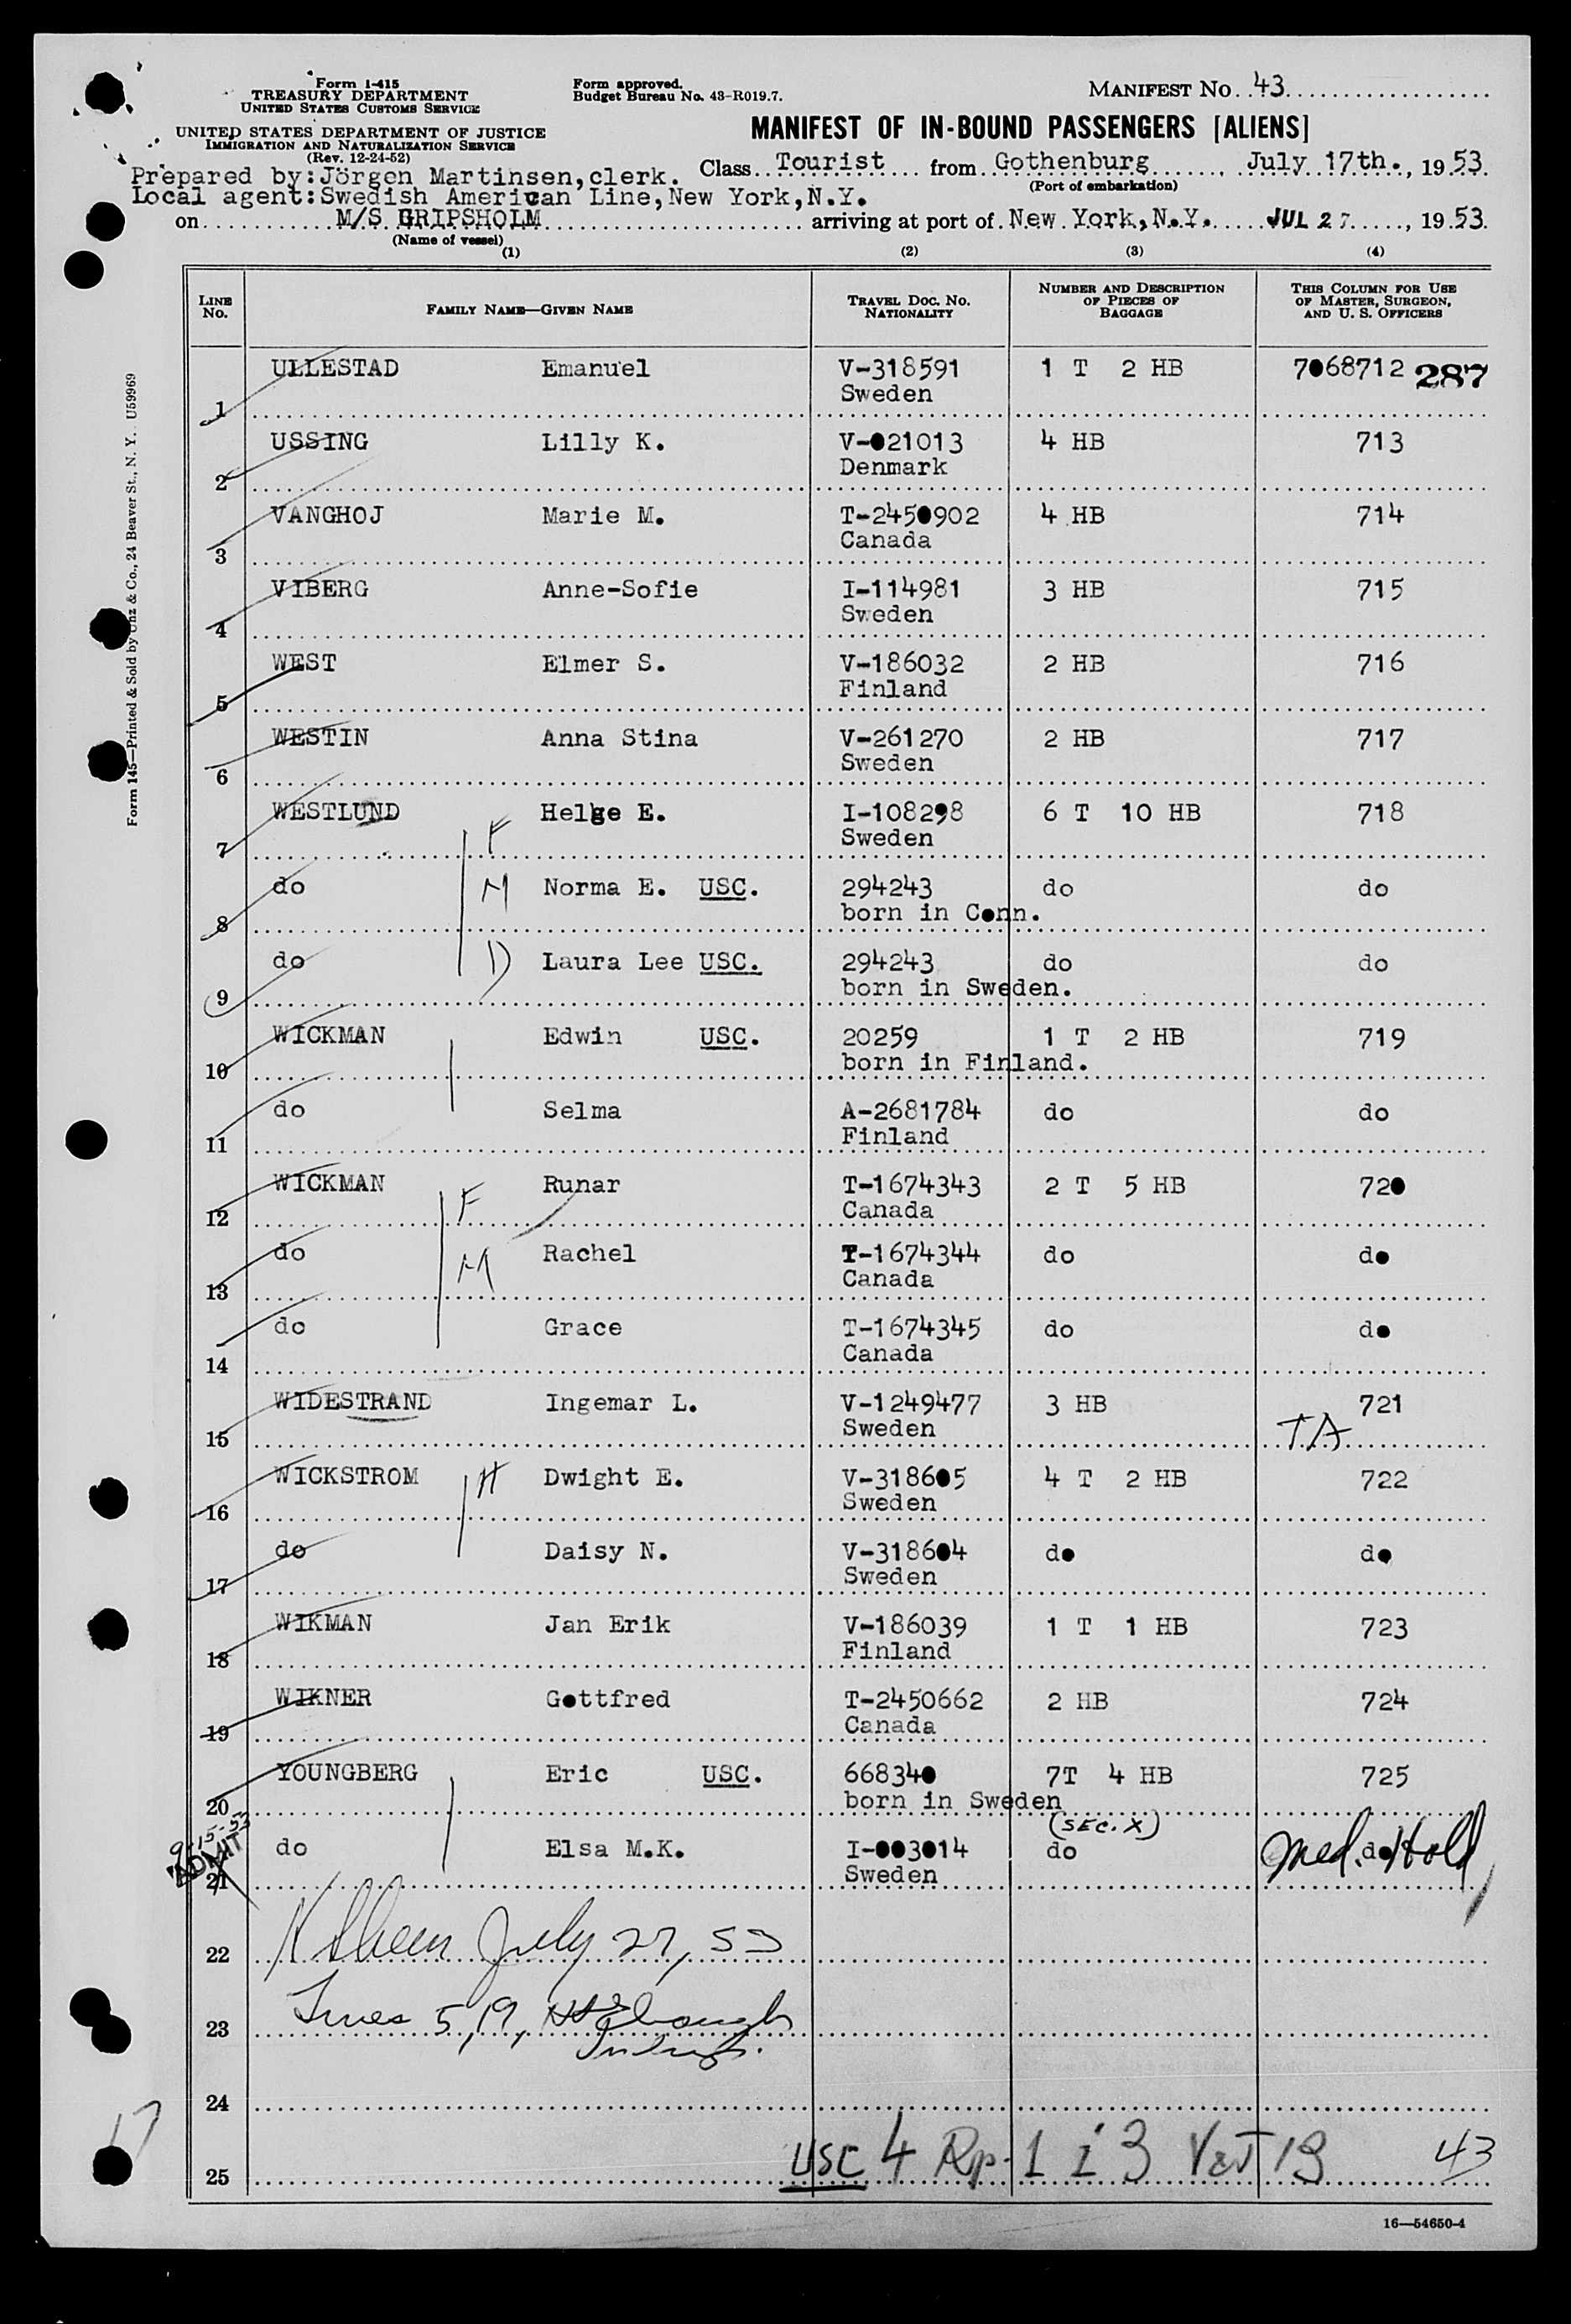 Form I-415
TREASURY DEPARTMENT
UNITED STATES CUSTOMS SERVICE
UNITED STATES DEPARTMENT OF JUSTICE
IMMIGRATION AND NATURALIZATION SERVICE
(Rev. 12-24-52)
Form approved.
Budget Bureau No. 43-R019.7.
MANIFEST NO. 43
MANIFEST OF IN-BOUND PASSENGERS [ALIENS]
Prepared by:Jörgen Martinsen,clerk. Class Tourist from Gothenburg, July 17th., 1953.
(Port of embarkation)
Local agent:Swedish American Line,New York,N.Y.
on M/S GRIPSHOLM arriving at port of New York,N.Y. JUL 27, 1953.
(Name of vessel)
(1) (2) (3) (4)
LINE NO. FAMILY NAME—GIVEN NAME TRAVEL DOC. NO. NATIONALITY NUMBER AND DESCRIPTION OF PIECES OF BAGGAGE THIS COLUMN FOR USE OF MASTER, SURGEON, AND U. S. OFFICERS
1 ULLESTAD Emanuel V-318591 1 T 2 HB 7068712 287
Sweden
2 USSING Lilly K. V-021013 4 HB 713
Denmark
3 VANGHOJ Marie M. T-2450902 4 HB 714
Canada
4 VIBERG Anne-Sofie I-114981 3 HB 715
Sweden
5 WEST Elmer S. V-186032 2 HB 716
Finland
6 WESTIN Anna Stina V-261270 2 HB 717
Sweden
7 WESTLUND F Helge E. I-108298 6 T 10 HB 718
Sweden
8 do M Norma E. USC. 294243 do do
born in Conn.
9 do D Laura Lee USC. 294243 do do
born in Sweden.
10 WICKMAN Edwin USC. 20259 1 T 2 HB 719
born in Finland.
11 do Selma A-2681784 do do
Finland
12 WICKMAN F Runar T-1674343 2 T 5 HB 720
Canada
13 do M Rachel T-1674344 do do
Canada
14 do Grace T-1674345 do do
Canada
15 WIDESTRAND Ingemar L. V-1249477 3 HB 721
Sweden TA
16 WICKSTROM H Dwight E. V-318605 4 T 2 HB 722
Sweden
17 do Daisy N. V-318604 do do
Sweden
18 WIKMAN Jan Erik V-186039 1 T 1 HB 723
Finland
19 WIKNER Gottfred T-2450662 2 HB 724
Canada
20 YOUNGBERG Eric USC. 668340 7T 4 HB 725
born in Sweden
9-15-53
ADMIT
(SEC. X)
21 do Elsa M.K. I-003014 do do Med. Hold
Sweden
22 July 27, 53
23 5, 19,
24
25 USC 4 Rp 1 i 3 V&T 13 43
17
16—54650-4
Form 145—Printed & Sold by Unz & Co., 24 Beaver St., N. Y. U59969